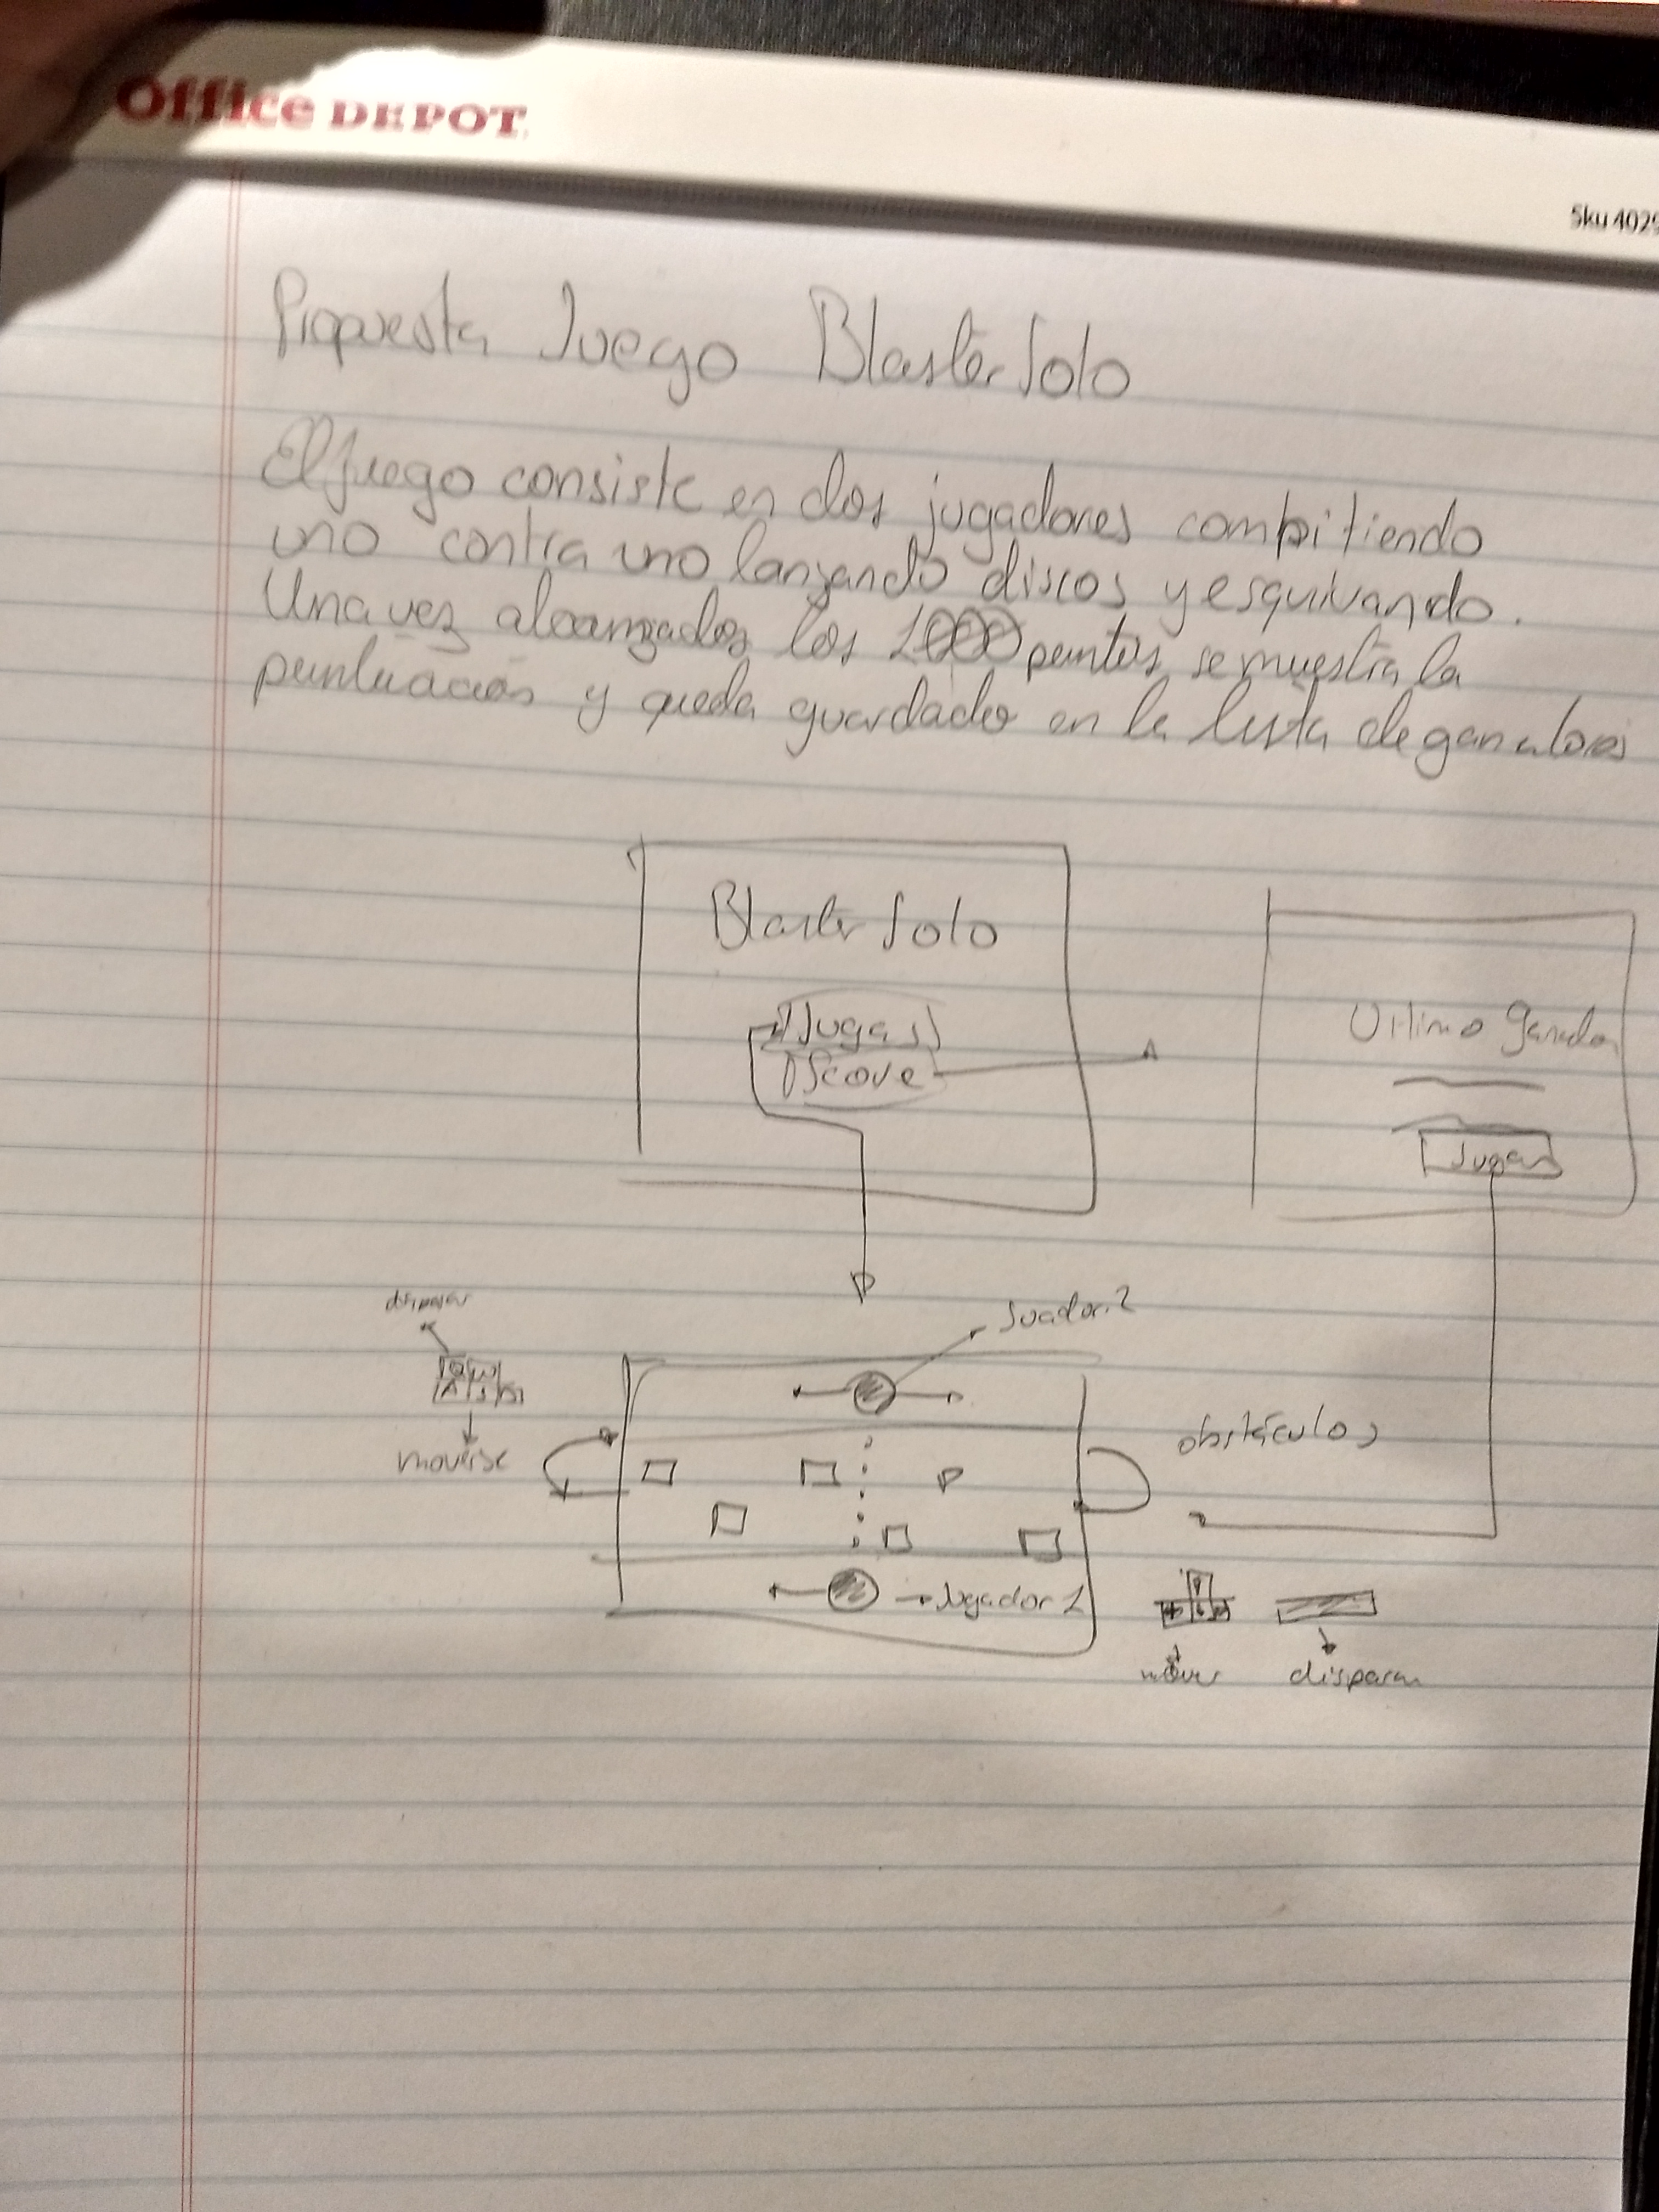 Office DEPOT
Sku 4029
Propuesta Juego Blaster Solo
El juego consiste en dos jugadores combitiendo
uno contra uno lanzando discos y esquivando.
Una vez alcanzados los 1000 puntos, se muestra la
puntuación y queda guardado en la lista de ganadores
Blaster Solo
Jugar
Score
Ultimo Ganador
Jugar
disparar
Juador.2
Q W
A S D
moverse
obstáculos
Jugador 1
mover
disparar